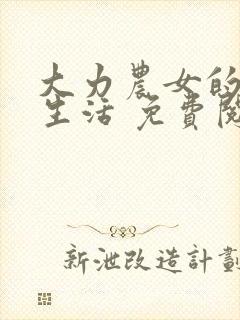 大力農女的
生活 免費閱
新泄改造計劃